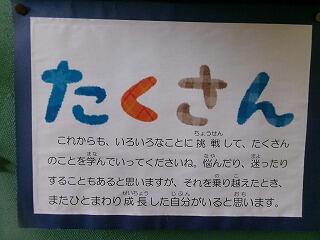 たくさん
これからも、いろいろなことに挑戦して、たくさん
のことを学んでいってくださいね。悩んだり、迷ったり
することもあると思いますが、それを乗り越えたとき、
またひとまわり成長した自分がいると思います。